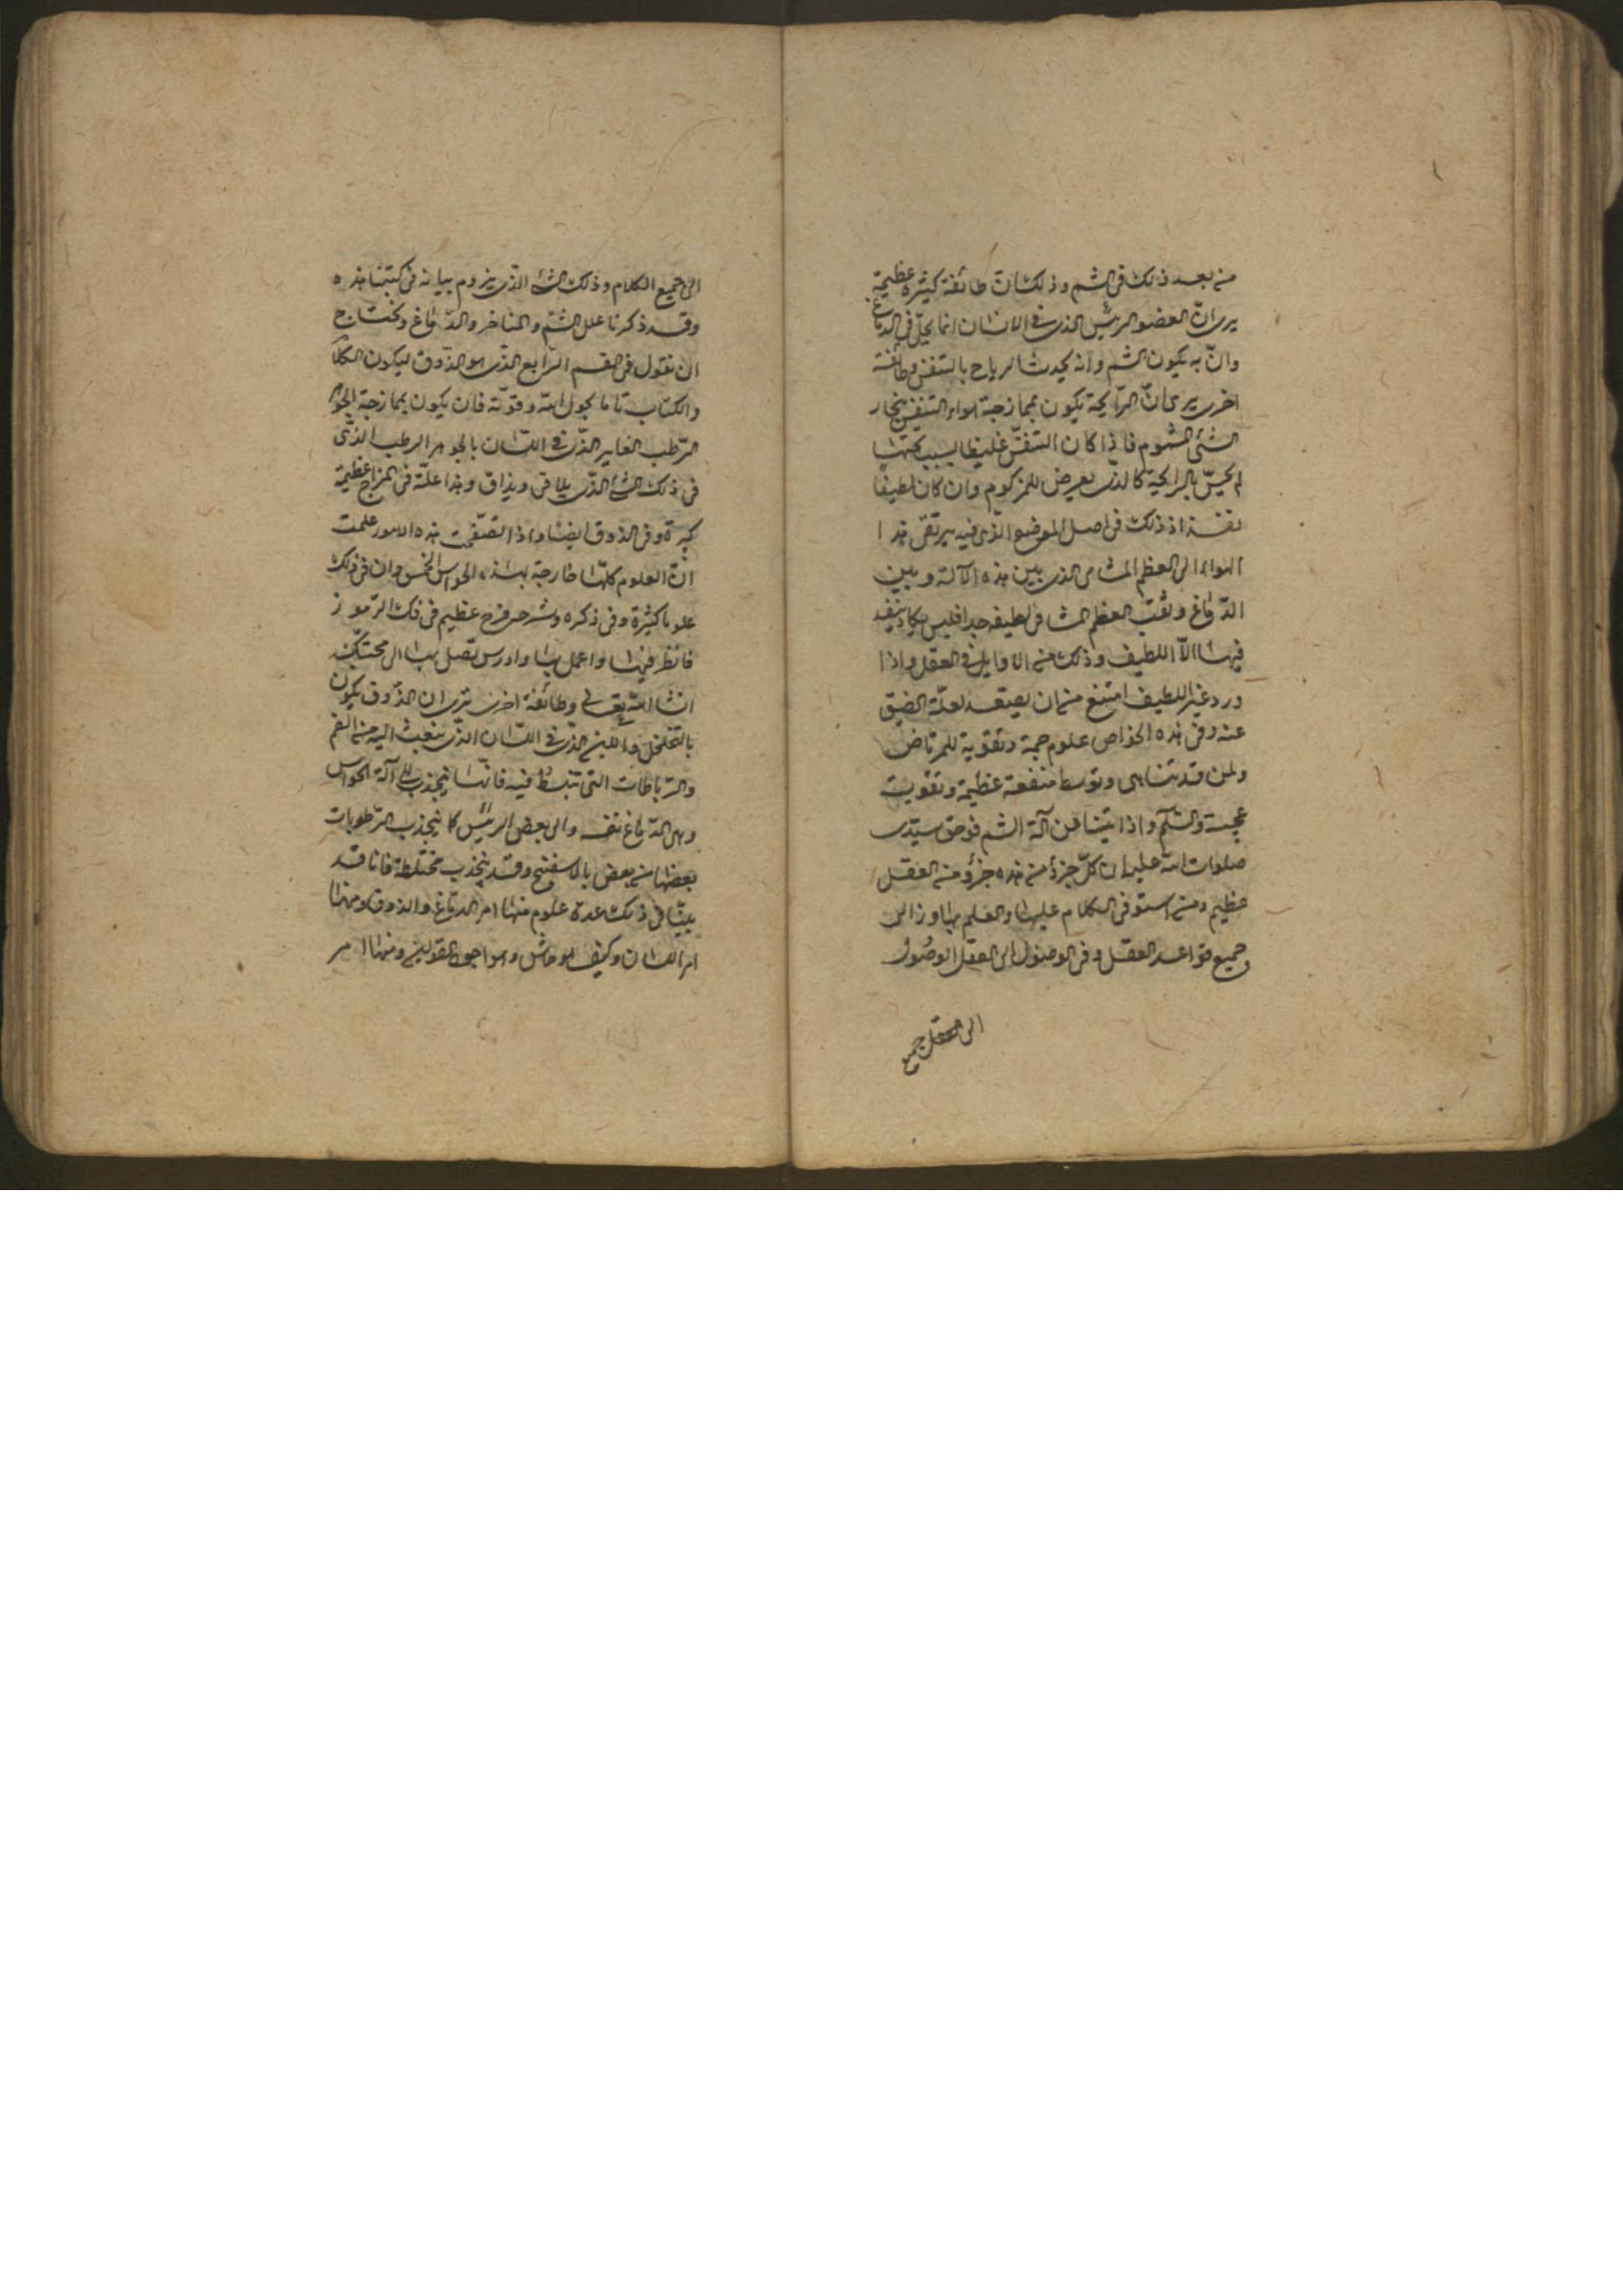 من بعد ذلك فى الشم وذلك ان طائفة كثيرة عظيمة
يرى انّ العضو الرئيس الذى فى الانسان انما يحلّ فى الدماغ
وانّ به يكون الشم وانه يحدث الرياح بالتنفس وطائفة
اخرى يرى انّ الرّايحة يكون بممازجة هواء التنفس بخار
الشئ المشموم فاذا كان التنفّس غليظا لسبب
لم يحسّ بالرايحة كالذى يعرض للمزكوم وان كان لطيفا
نفذ اذ ذلك فى اصل الموضع الذى فيه يرتقى هذا
الهواء الى العظم المشاشى الذى بين هذه الآلة وبين
الدّماغ وثقب العظم لطيفه جدا فليس يكاد ينفذ
فيها الّا اللطيف وذلك من الاوايل فى العقل واذا
ورد غير اللطيف امتنع من ان يصعد لعلّة الضيق
عنه وفى هذه الخواص علوم جمة وتقوية للمرتاض
ولمن قد تناهى وتوسط منفعة عظيمة وتقوية
عجيبة والسّلم واذا بيّنا عن آلة الشم فوحق سيّدى
صلوات الله عليه ان كلّ جزؤ من هذه جزؤ من العقل
عظيم ومن استوفى الكلام عليها والعلم بها وزالى
جميع قواعد العقل وفى الوصول الى العقل الوصُول
الى العقل جميع
الى جميع الكلام وذلك الشئ الذى نروم بيانه فى كتبنا هذه
وقد ذكرنا علل الشم والمناخر والدّماغ ونحتاج
ان نقول فى القسم الرّابع الذى هو الذّوق ليكون الكلام
والكتاب تاما بحول الله وقوّته فان يكون بممازجة الجوهر
الرّطب الذى فى اللّسان بالجوهر الرطب الذّى
فى ذلك الشئ الذّى يلاقى ويذاق وهذا علّة فى المزاج عظيمة
كبيرة وفى الذوق ايضا واذا تصفّحت هذه الامور علمت
انّ العلوم كلها خارجة بهذه الحواس الخمس وان فى ذلك
علوما كثيرة وفى ذكره وشرحى فرح عظيم فى فك الرّموز
فانظر فيها واعمل بها وادرس تصل بها الى محبتك
انشا الله تعالى وطائفة اخرى ترى ان الذّوق يكون
بالتخلخل واللين الذّى فى اللّسان الذّى ينبعث اليه من الفم
والرّباطات التى تنبسط فيه فانّها تنجذب الى آلة الحواس
وهى الدّماغ نفسه والى بعض الرئيس كما ينجذب الرّطوبات
بعضها من بعض بالاسفنج وقد ينجذب مختلطة فانا قد
بيّنا فى ذلك عدة علوم منها امر الدّماغ والذوق ومنها
امر اللسان وكيف هو وما جو القولين ومنها امر